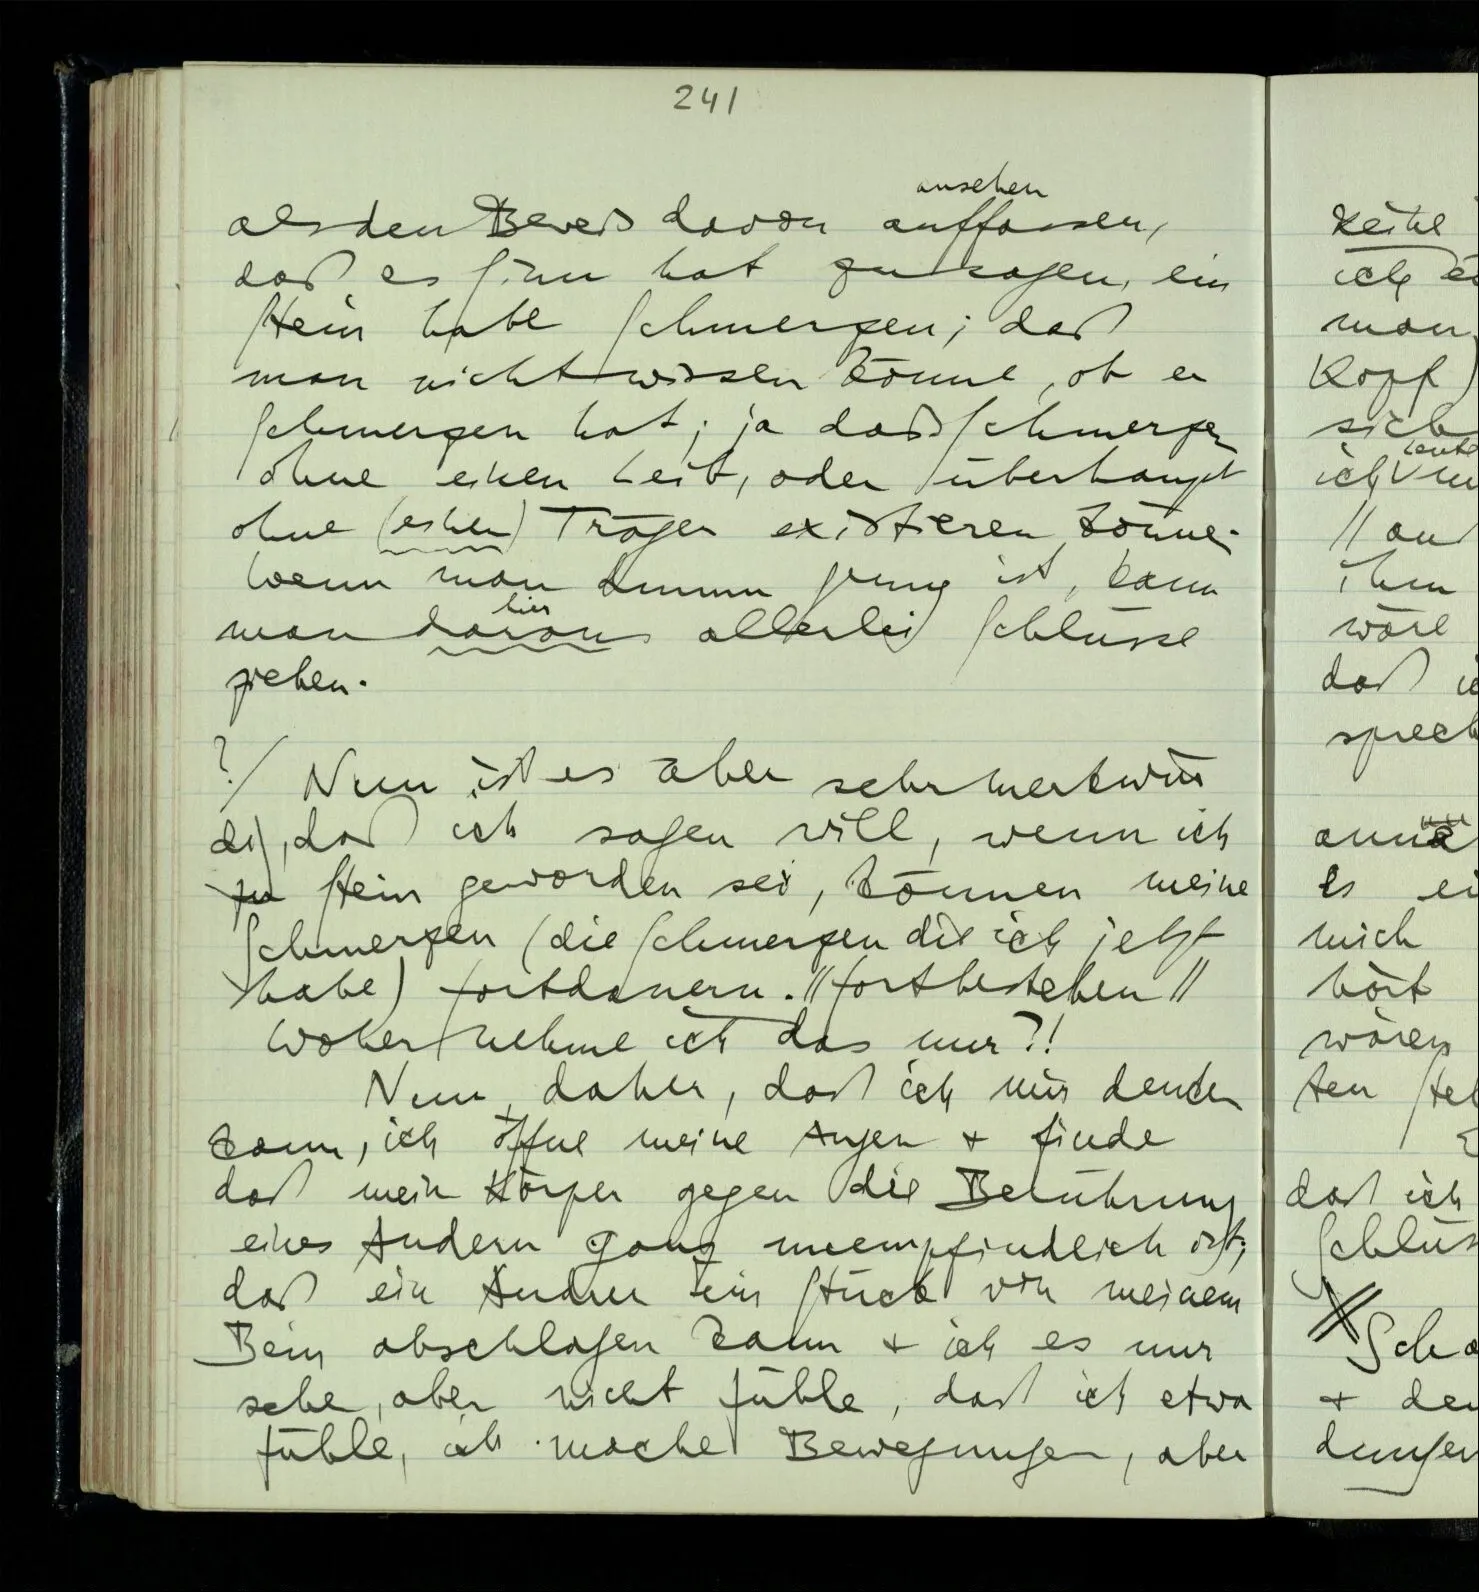 241
ansehen
als den Beweis davon auffassen,
daß es Sinn hat zu sagen, ein
Stein habe Schmerzen; daß
man nicht wissen könne, ob er
Schmerzen hat; ja daß Schmerzen
ohne einen Leib, oder überhaupt
ohne (einen) Träger existieren könne.
Wenn man dumm genug ist, kann
hier
man daraus allerlei Schlüsse
ziehen.
?/ Nun ist es aber sehr merkwür
dig, daß ich sagen will, wenn ich
zu Stein geworden sei, können meine
Schmerzen (die Schmerzen die ich jetzt
habe) fortdauern. //fortbestehen//
Woher nehme ich das nur?!
Nun daher, daß ich mir denken
kann, ich öffne meine Augen + finde
daß mein Körper gegen die Berührung
eines Andern ganz unempfindlich ist;
daß ein Andrer ein Stück von meinem
Bein abschlagen kann + ich es nur
sehe, aber nicht fühle, daß ich etwa
fühle, ich mache Bewegungen, aber
keine
ich
man
Kopf)
sich
ich
//
ihm
wäre
daß
sprech
mich
hört
wären
ten
daß ich
Schlüs
+